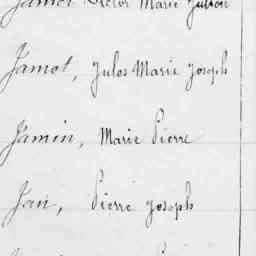 Victor Marie
Jamot, Jules Marie Joseph
Jamin, Marie Pierre
Jan, Pierre Joseph